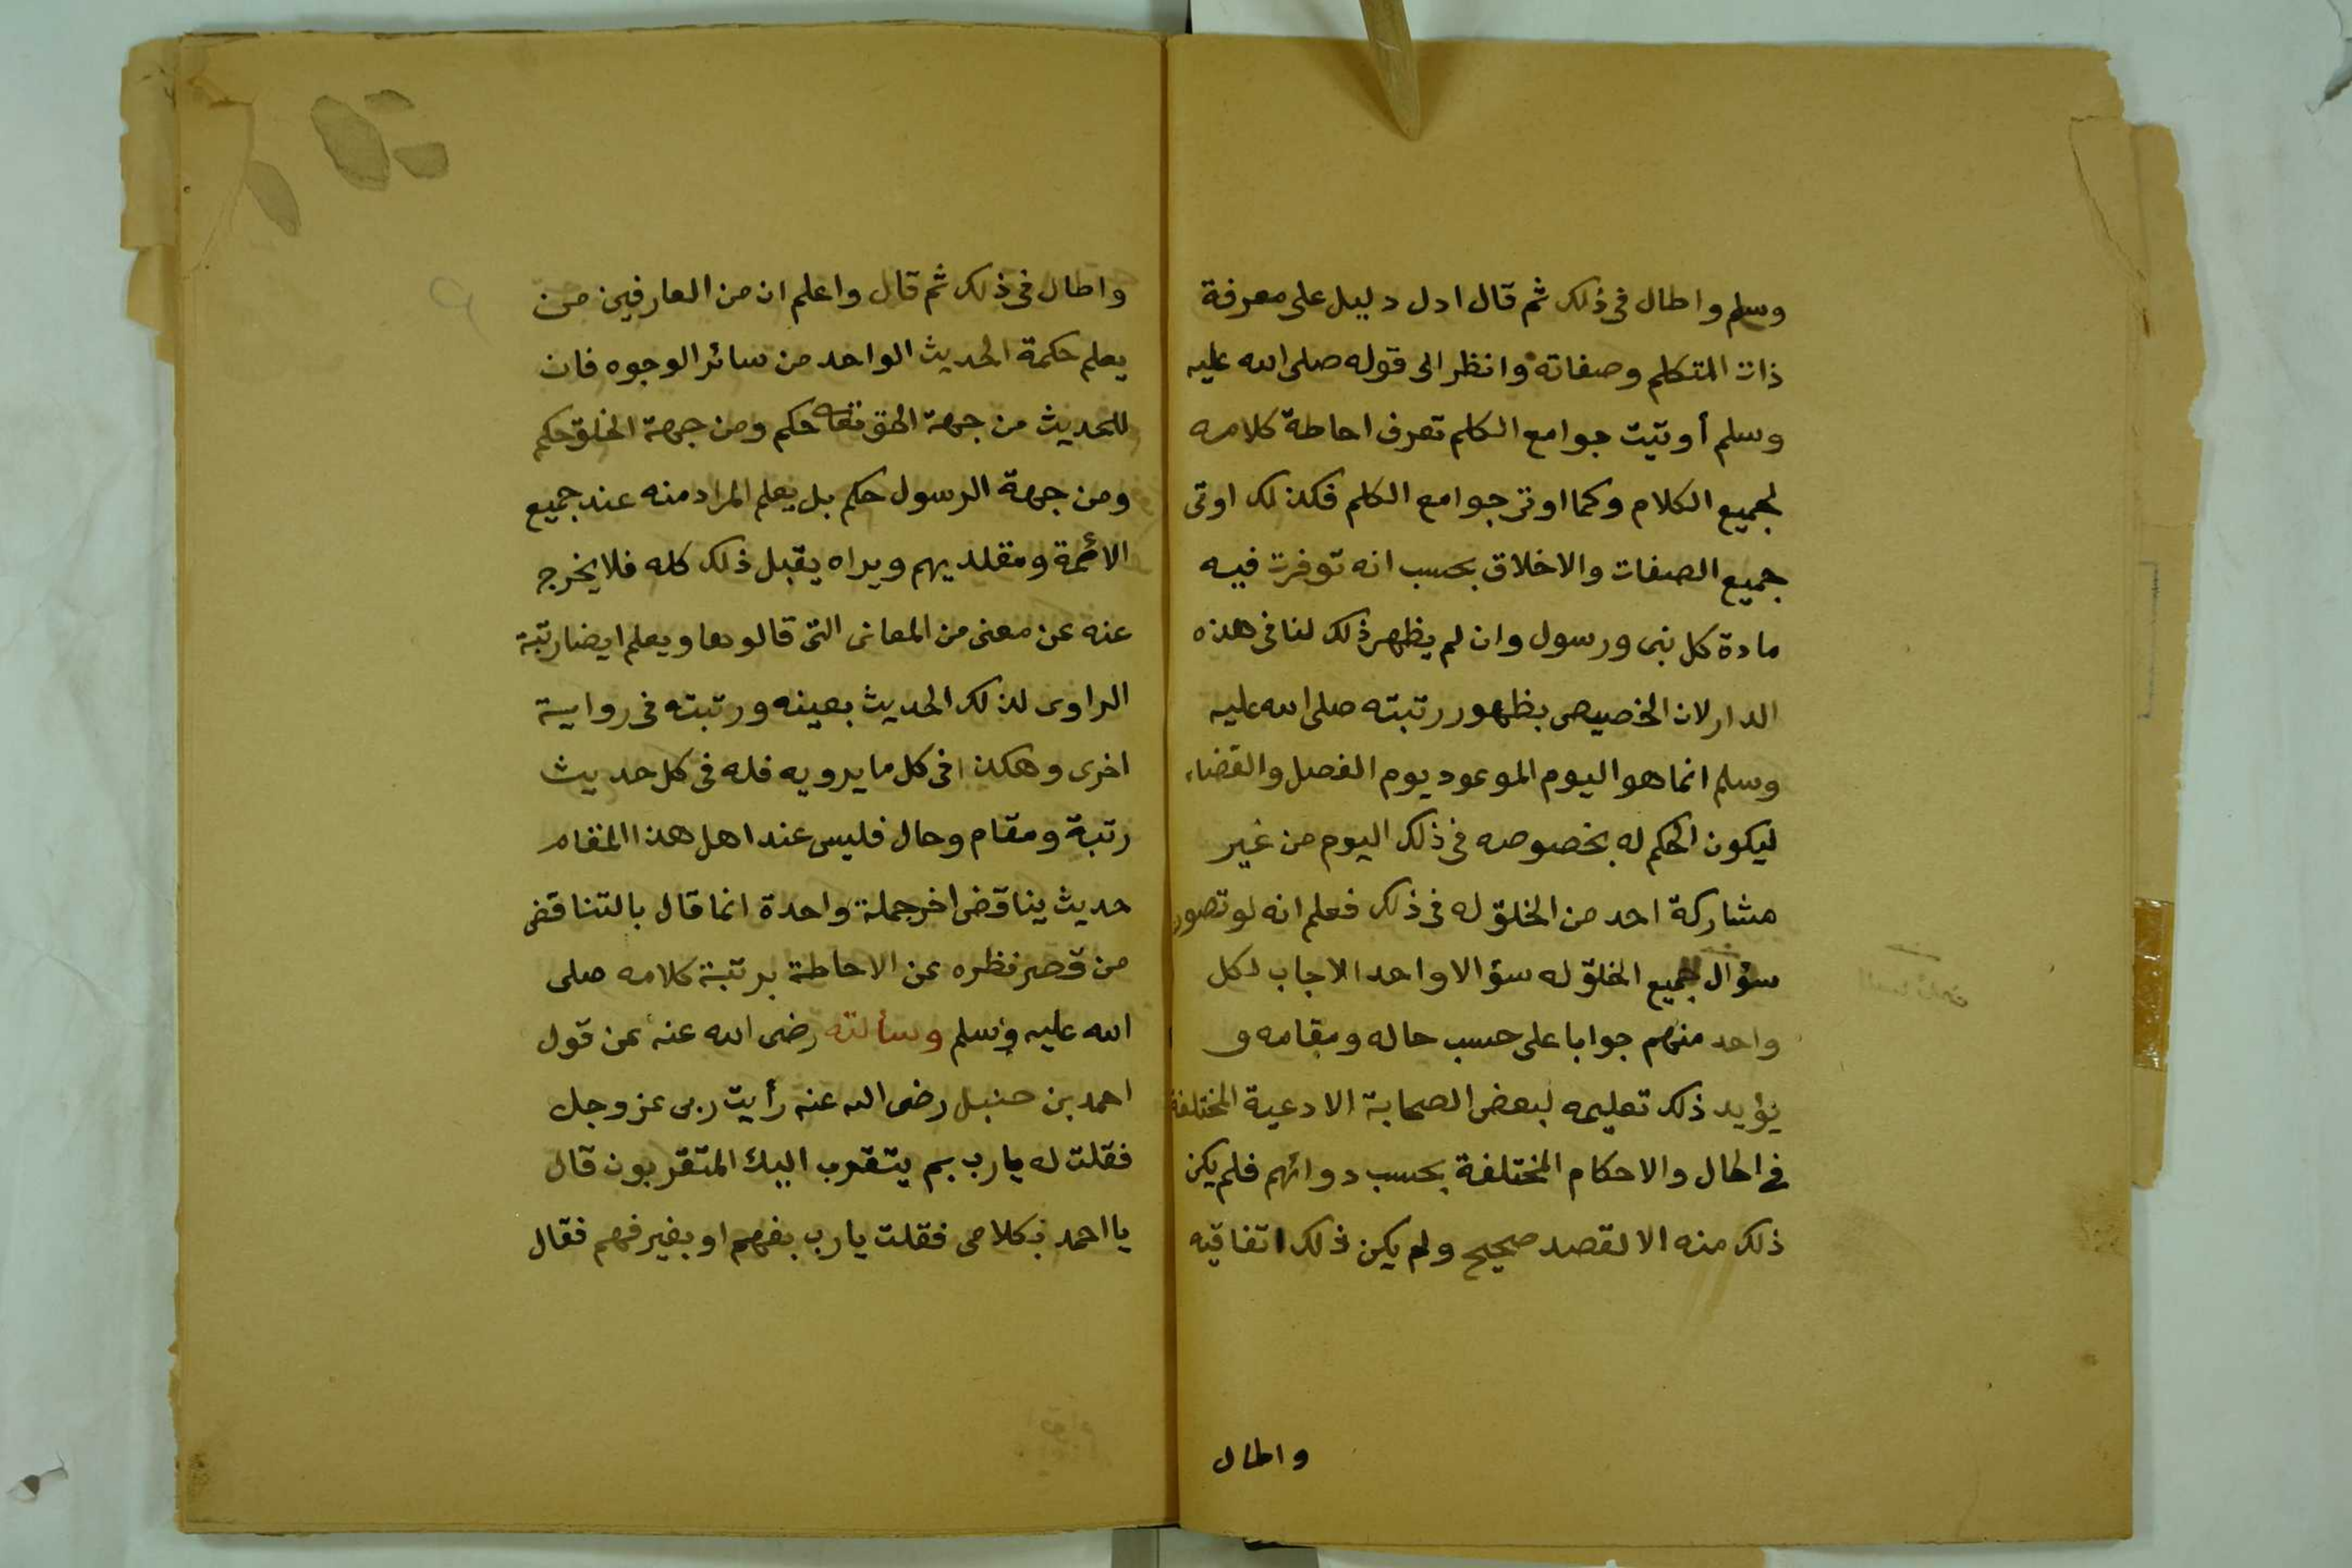 وسلم واطال فى ذلك ثم قال ادل دليل على معرفة
ذات المتكلم وصفاته وانظر الى قوله صلى الله عليه
وسلم أوتيت جوامع الكلم تعرف احاطة كلامه
لجميع الكلام وكما اوتى جوامع الكلم فكذلك اوتى
جميع الصفات والاخلاق بحسب انه توفرت فيه
مادة كل نبى ورسول وان لم يظهر ذلك لنا فى هذه
الدار لان الخصيص بظهور رتبته صلى الله عليه
وسلم انما هو اليوم الموعود يوم الفصل والقضاء
ليكون الحكم له بخصوصه فى ذلك اليوم من غير
مشاركة احد من الخلق له فى ذلك فعلم انه لو تصور
سؤال جميع الخلق له سؤالا واحدا لاجاب لكل
واحد منهم جوابا على حسب حاله ومقامه و
يؤيد ذلك تعليمه لبعض الصحابة الادعية المختلفة
فى الحال والاحكام المختلفة بحسب دوائهم فلم يكن
ذلك منه الا لقصد صحيح ولم يكن ذلك اتفاقيه
واطال
واطال فى ذلك ثم قال واعلم ان من العارفين من
يعلم حكمة الحديث الواحد من سائر الوجوه فان
للحديث من جهة الحق تعالى حكم ومن جهة الخلق حكم
ومن جهة الرسول حكم بل يعلم المراد منه عند جميع
الائمة ومقلديهم ويراه يقبل ذلك كله فلا يخرج
عنه عن معنى من المعانى التى قالوها ويعلم ايضا رتبة
الراوى لذلك الحديث بعينه ورتبته فى رواية
اخرى وهكذا فى كل ما يرويه فله فى كل حديث
رتبة ومقام وحال فليس عند اهل هذا المقام
حديث يناقض اخر جملة واحدة انما قال بالتناقض
من قصر نظره عن الاحاطة برتبة كلامه صلى
الله عليه وسلم وسألته رضى الله عنه عن قول
احمد بن حنبل رضى الله عنه رأيت ربى عز وجل
فقلت له يارب بم يتقرب اليك المتقربون قال
يا احمد بكلامى فقلت يارب بفهم او بغير فهم فقال